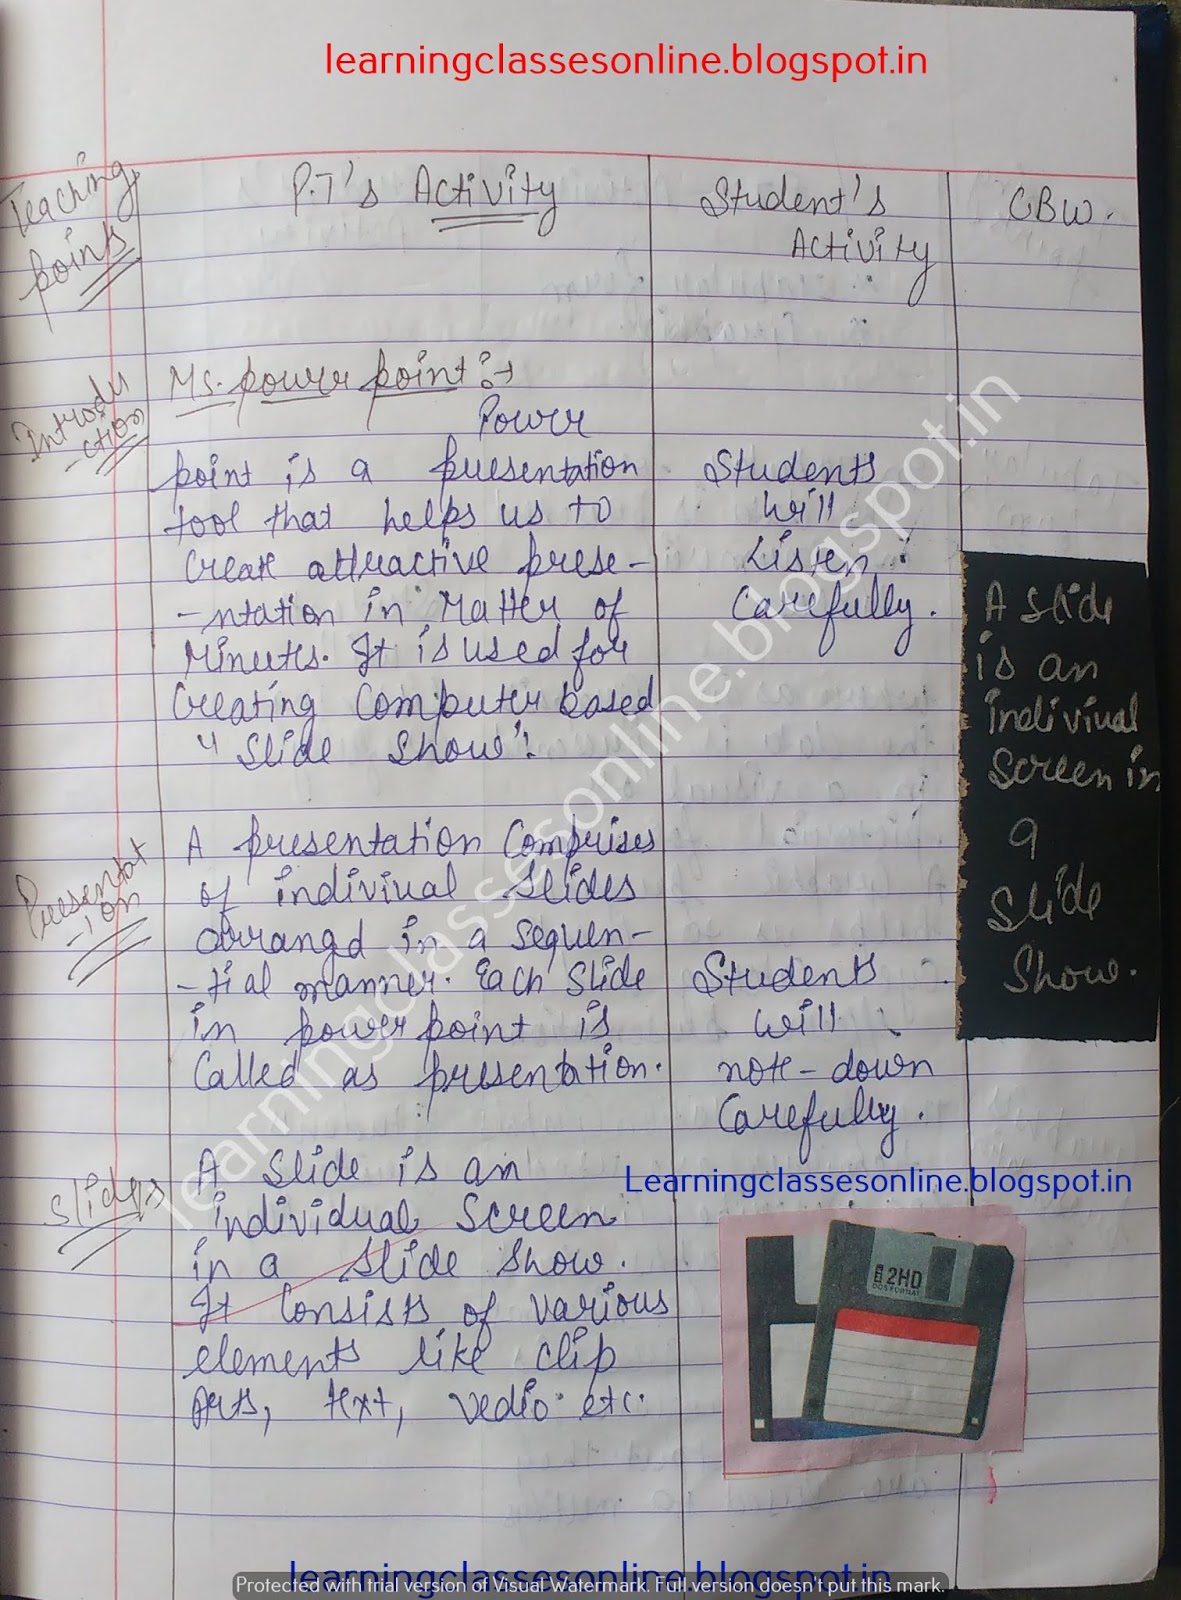 learningclassesonline.blogspot.in
Teaching
points
P.T's Activity
Student's
Activity
CBW.
Introdu
-ction
Ms. power point :→
Power
point is a presentation
tool that helps us to
Create attractive prese-
-ntation in Matter of
Minutes. It is used for
Creating Computer based
"Slide Show".
Students
will
Listen
Carefully.
A slide
is an
indiviual
screen in
a
slide
show.
Presentat
-ion
A presentation Comprises
of indiviual slides
arrangd in a sequen-
-tial manner. Each slide
in power point is
Called as presentation.
Students
will
note-down
Carefully.
Slides
A Slide is an
individual Screen
in a slide show.
It Consists of various
elements like clip
Arts, text, vedio etc.
Learningclassesonline.blogspot.in
2HD
DOS FORMAT
learningclassesonline.blogspot.in
learningclassesonline.blogspot.in
Protected with trial version of Visual Watermark. Full version doesn't put this mark.